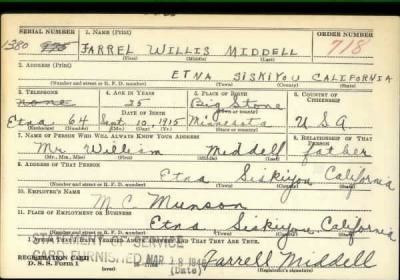 SERIAL NUMBER 1. NAME (Print) ORDER NUMBER
1380 FARREL WILLIS MIDDELL 718
(First) (Middle) (Last)
2. ADDRESS (Print)
ETNA SISKIYOU CALIFORNIA
(Number and street or R. F. D. number) (Town) (County) (State)
3. TELEPHONE 4. AGE IN YEARS 5. PLACE OF BIRTH 6. COUNTRY OF CITIZENSHIP
none 25 Big Stone
DATE OF BIRTH (Town or county)
Etna 64 Sept. 10, 1915 Minnesota U S A
(Exchange) (Number) (Mo.) (Day) (Yr.) (State or country)
7. NAME OF PERSON WHO WILL ALWAYS KNOW YOUR ADDRESS 8. RELATIONSHIP OF THAT PERSON
Mr. William Middell father
(Mr., Mrs., Miss) (First) (Middle) (Last)
9. ADDRESS OF THAT PERSON
Etna Siskiyou California
(Number and street or R. F. D. number) (Town) (County) (State)
10. EMPLOYER'S NAME
M. C. Munson
11. PLACE OF EMPLOYMENT OR BUSINESS
Etna Siskiyou California
(Number and street or R. F. D. number) (Town) (County) (State)
I AFFIRM THAT I HAVE VERIFIED ABOVE ANSWERS AND THAT THEY ARE TRUE.
REGISTRATION CARD
D. S. S. Form 1 (over) (Date) Farrell Middell
(Registrant's signature)
CARD FURNISHED MAR 28